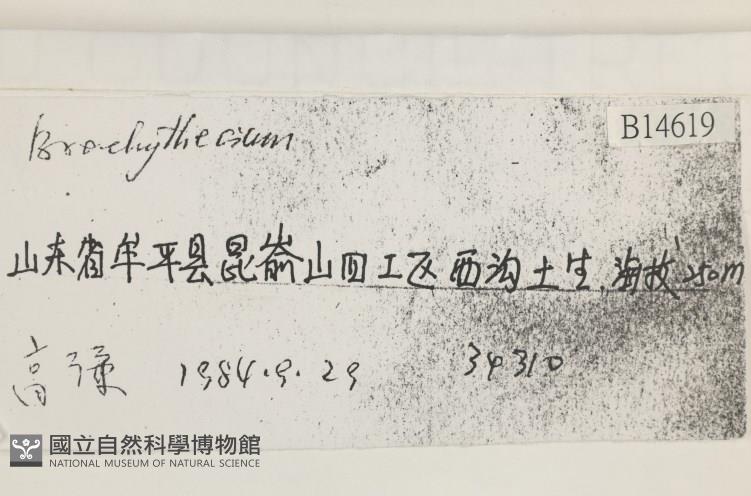 Brachythecium
B14619
山东省牟平县昆嵛山回工区西沟土生,海拔250m
高 1984.9.29 34310
國立自然科學博物館
NATIONAL MUSEUM OF NATURAL SCIENCE